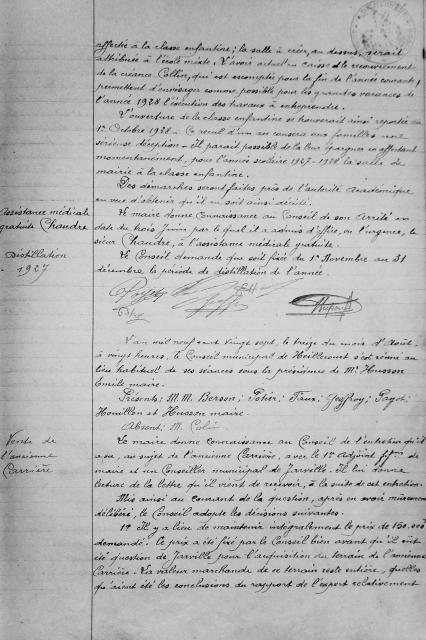 affectée à la classe enfantine; la salle à créer, au dessus, serait
attribuée à l'école mixte. L'avoir actuel en caisse et le recouvrement
de la créance Collin, qui est escomptée pour la fin de l'année courante,
permettent d'envisager comme possible pour les grandes vacances de
l'année 1928 l'exécution des travaux à entreprendre.
L'ouverture de la classe enfantine se trouverait ainsi reportée au
1er Octobre 1928 - Ce recul d'un an causera aux familles une
sérieuse déception - il parait possible de la leur épargner en affectant
momentanément, pour l'année scolaire 1927-1928 la salle de
mairie à la classe enfantine.
Des démarches seront faites près de l'autorité académique
en vue d'obtenir qu'il en soit ainsi décidé.
Assistance médicale
gratuite Chaudre
Le maire donne connaissance au Conseil de son Arrêté en
date du trois Juin par lequel il a admis d'office, vu l'urgence, le
sieur Chaudre, à l'assistance médicale gratuite.
Distillation
1927
Le Conseil demande que soit fixée du 1er Novembre au 31
décembre, la période de distillation de l'année.
L'an mil neuf cent vingt sept, le treize du mois d'Août,
à vingt heures, le Conseil municipal de Heillecourt s'est réuni au
lieu habituel de ses séances sous la présidence de Mr Husson
Emile maire.
Présents: M.M. Berson; Pothier; Faux; Geoffroy; Payot;
Houillon et Husson maire.
Absent: M. Colin
Vente de
l'ancienne
Carrière
Le maire donne connaissance au Conseil de l'entretien qu'il
a eu, au sujet de l'ancienne Carrière, avec le 1er Adjoint ff.ons de
maire et un Conseiller municipal de Jarville. Il lui donne
lecture de la lettre qu'il vient de recevoir, à la suite de cet entretien.
Mis ainsi au courant de la question, après en avoir mûrement
délibéré, le Conseil adopte les décisions suivantes.
1° Il y a lieu de maintenir intégralement le prix de 150.000
demandé. Ce prix a été fixé par le Conseil bien avant qu'il ait
été question de Jarville pour l'acquisition du terrain de l'ancienne
Carrière. La valeur marchande de ce terrain reste entière, quelles
qu'aient été les conclusions du rapport de l'expert relativement